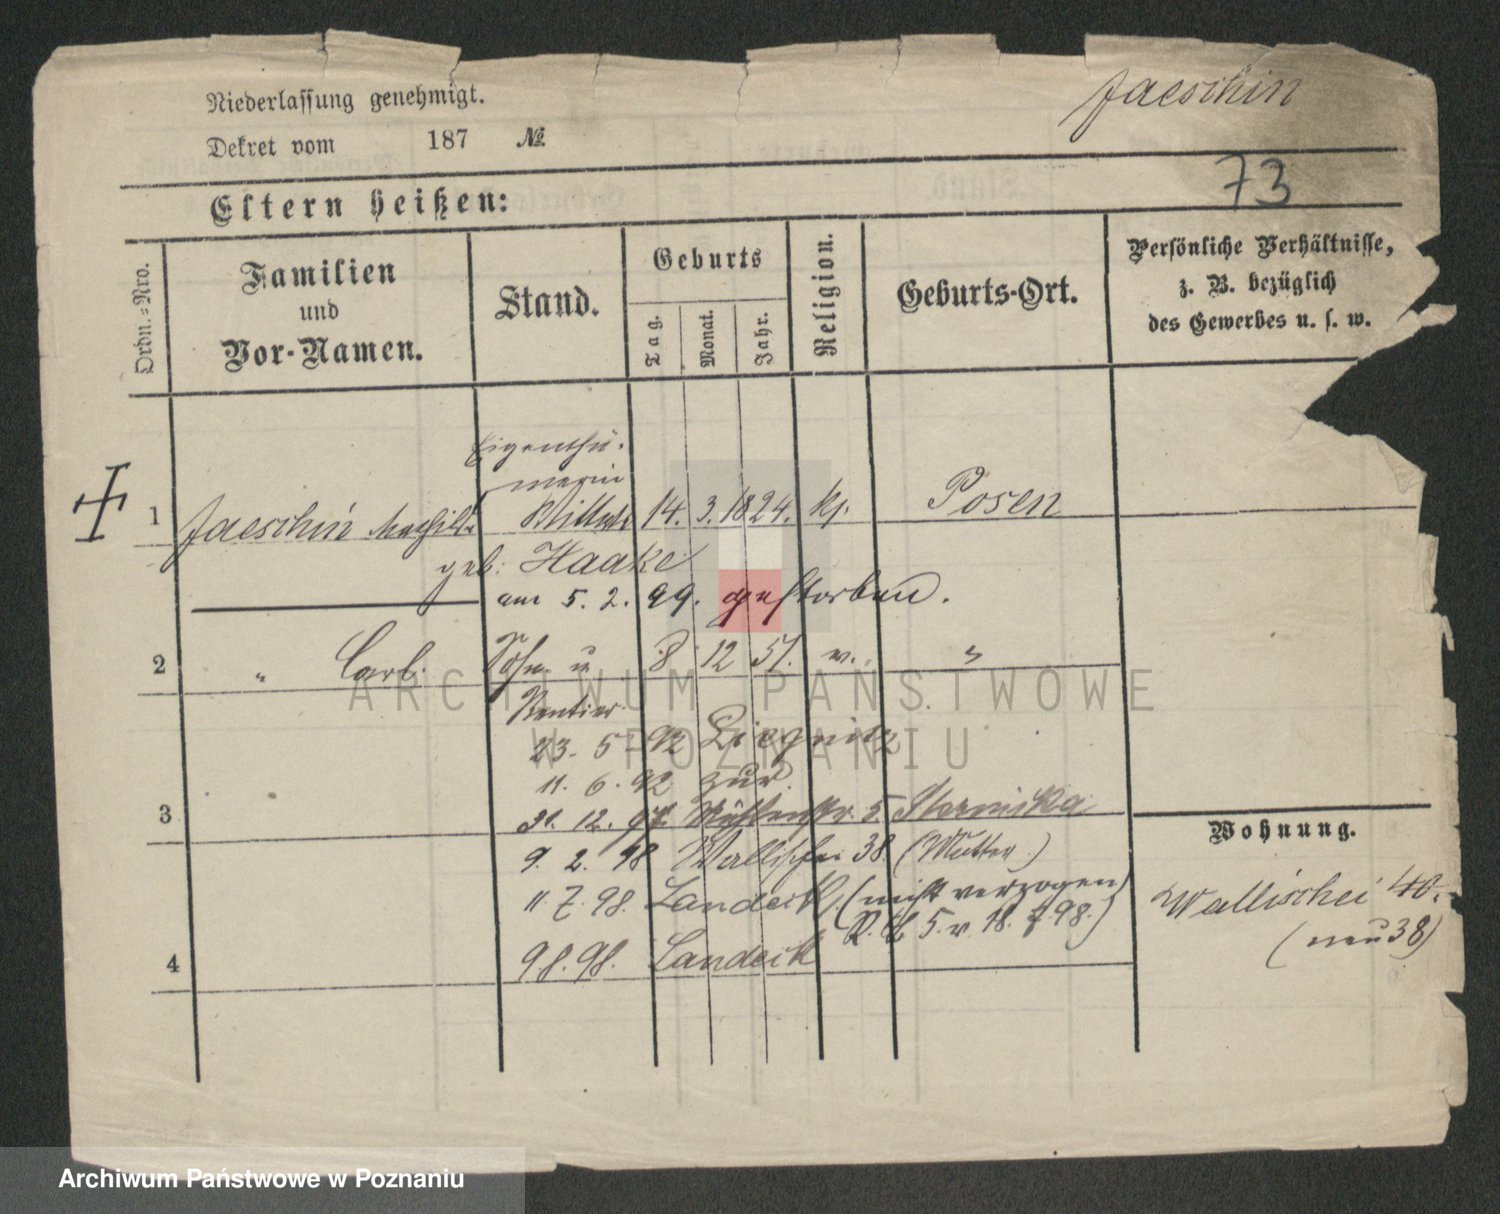 Niederlassung genehmigt.
Jaeschin
Dekret vom 187 №
73
Eltern heißen:
Ordn.=Nro.
Familien
und
Vor-Namen.
Stand.
Geburts
Tag.
Monat.
Jahr.
Religion.
Geburts-Ort.
Persönliche Verhältnisse,
z. B. bezüglich
des Gewerbes u. s. w.
Eigenthü-
merin
1 Jaeschin Wittwe 14. 3. 1824. Posen
geb. Haake
am 5. 2. 99. gestorben.
2 " Carl. Sohn u 8 12 51. "
Rentier
23. 5. 92 Liegnitz
11. 6. 92 zur.
3 31. 12. 97 Mühlenstr. 5
Wohnung.
9. 2. 98 Wallischei 38. (Mutter)
11. 7. 98. Landeck, (nicht verzogen
5. v. 18. 7 98.)
Wallischei 40.
(neu 38)
4 9. 8. 98. Landeck
ARCHIWUM PAŃSTWOWE
W POZNANIU
Archiwum Państwowe w Poznaniu